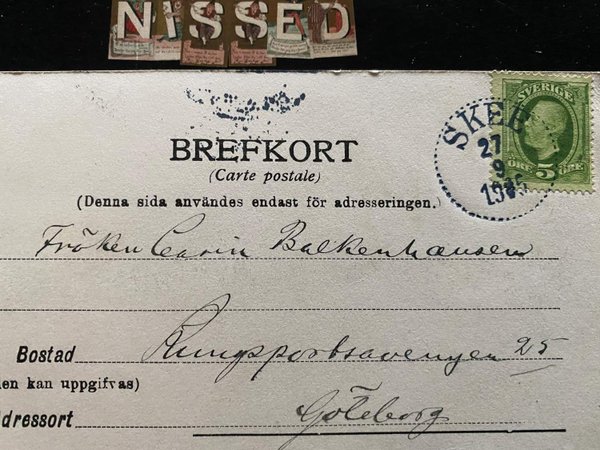 NISSED
SVERIGE
ÖRE 5 ÖRE
SKEE
27
9
BREFKORT
(Carte postale)
(Denna sida användes endast för adresseringen.)
Fröken Carin Balkenhausen
Bostad Kungsportsavenyen 25
en kan uppgifvas)
dressort Göteborg